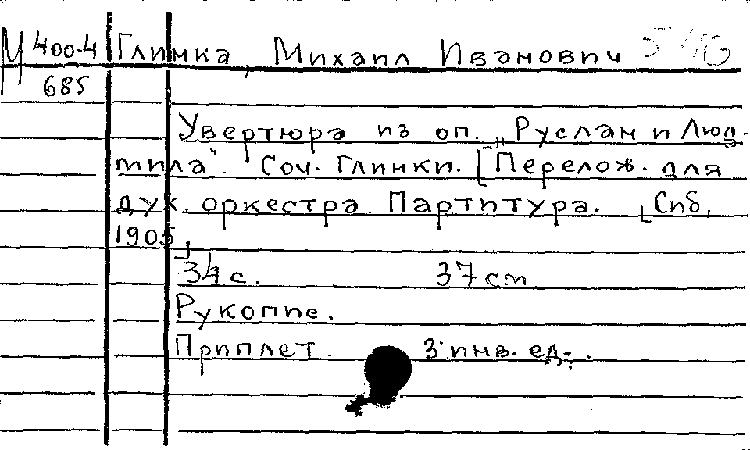 М 400-4 Глинка, Михаил Иванович
685
Увертюра из оп. „Руслан и Люд-
мила". Соч. Глинки. [Перелож. для
дух. оркестра Партитура. [Спб,
1905]
34 с. 37 см
Рукопис.
Приплет 3 инв. ед.